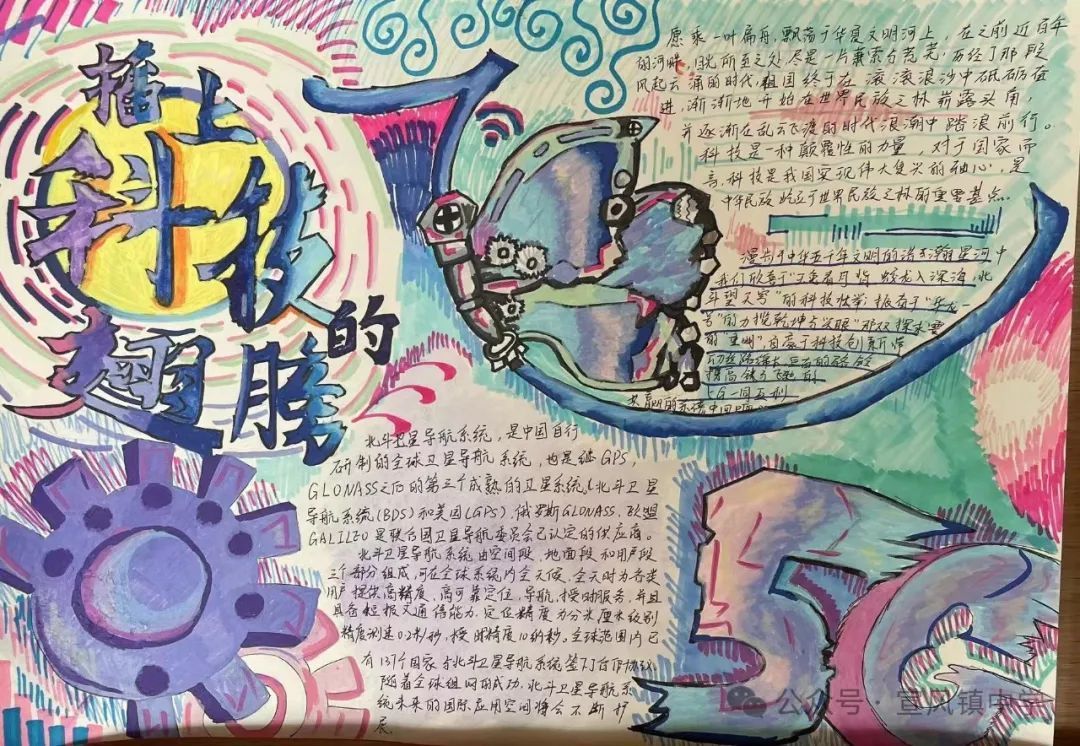 插上
科技
的
翅膀
愿乘一叶扁舟,飘荡于华夏文明河上,在之前近百年
的河畔,目光所至之处,尽是一片萧索与荒芜;历经了那段
风起云涌的时代,祖国终于在滚滚浪沙中砥砺奋
进,渐渐地开始在世界民族之林崭露头角,
并逐渐在乱云飞渡的时代浪潮中踏浪前行。
科技是一种颠覆性的力量,对于国家而
言,科技是我国实现伟大复兴的轴心,是
中华民族屹立于世界民族之林的重要基点。
漫步于中华五千年文明的浩瀚星河中
我们欣喜于
蛟龙入深海,北
的科技壮举
华龙一
号
科技创新
提高
北斗卫星导航系统,是中国自行
研制的全球卫星导航系统,也是继GPS,
GLONASS之后的第三个成熟的卫星系统。北斗卫星
导航系统(BDS)和美国(GPS)、俄罗斯GLONASS、欧盟
GALILEO是联合国卫星导航委员会已认定的供应商。
北斗卫星导航系统由空间段、地面段和用户段
三个部分组成,可在全球系统内全天候、全天时为各类
用户提供高精度、高可靠定位、导航、授时服务,并且
具备短报文通信能力,定位精度为分米厘米级别
精度测速0.2米/秒,授时精度10纳秒。全球范围内已
有137个国家与北斗卫星导航系统签下合作协议
随着全球组网的成功,北斗卫星导航系
统未来的国际应用空间将会不断扩
展。
5G
公众号·宣风镇中学